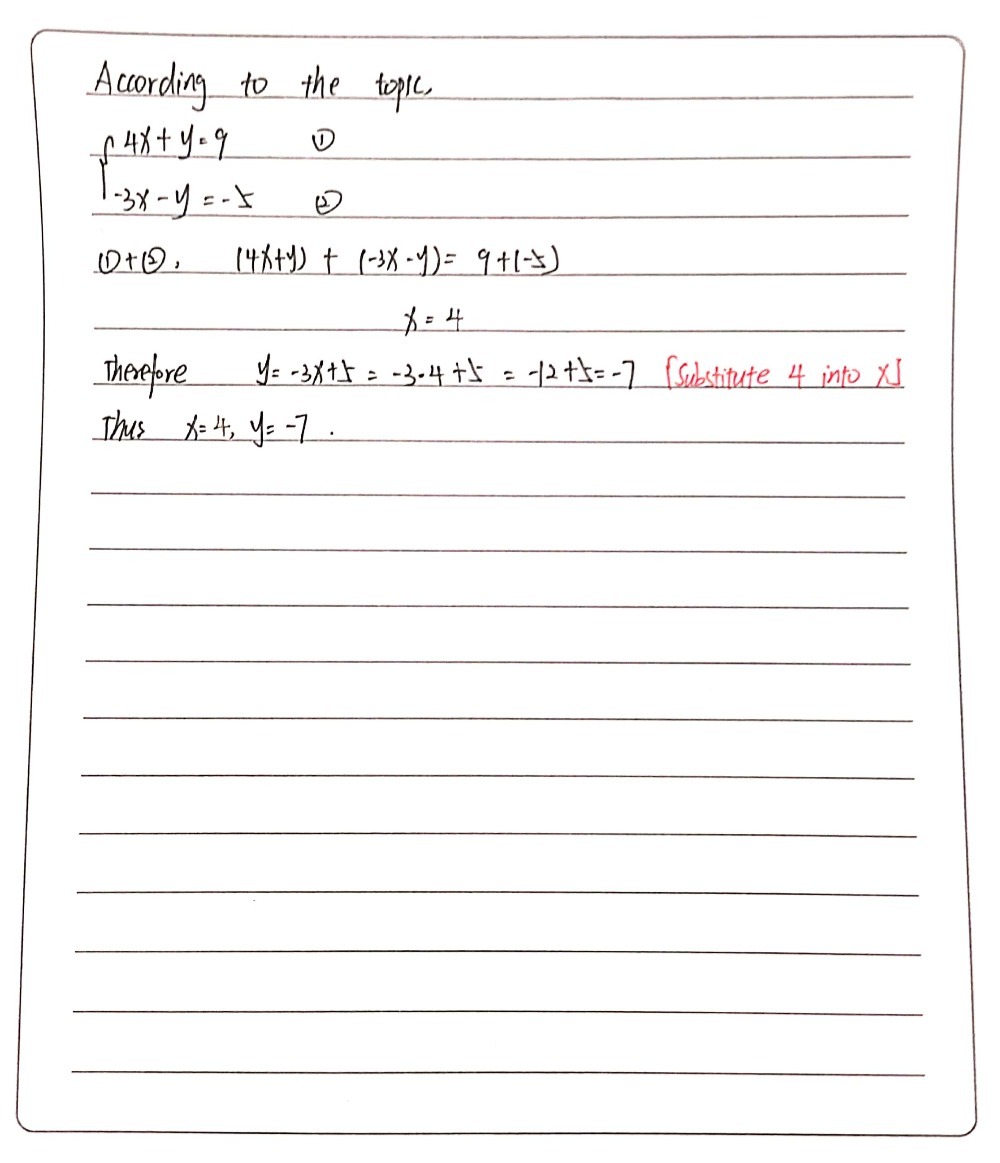 According to the topic,
4x + y = 9 ①
-3x - y = -5 ②
①+②, (4x+y) + (-3x-y) = 9+(-5)
x = 4
Therefore y = -3x+5 = -3·4+5 = -12+5 = -7 [Substitute 4 into x]
Thus x=4, y=-7.